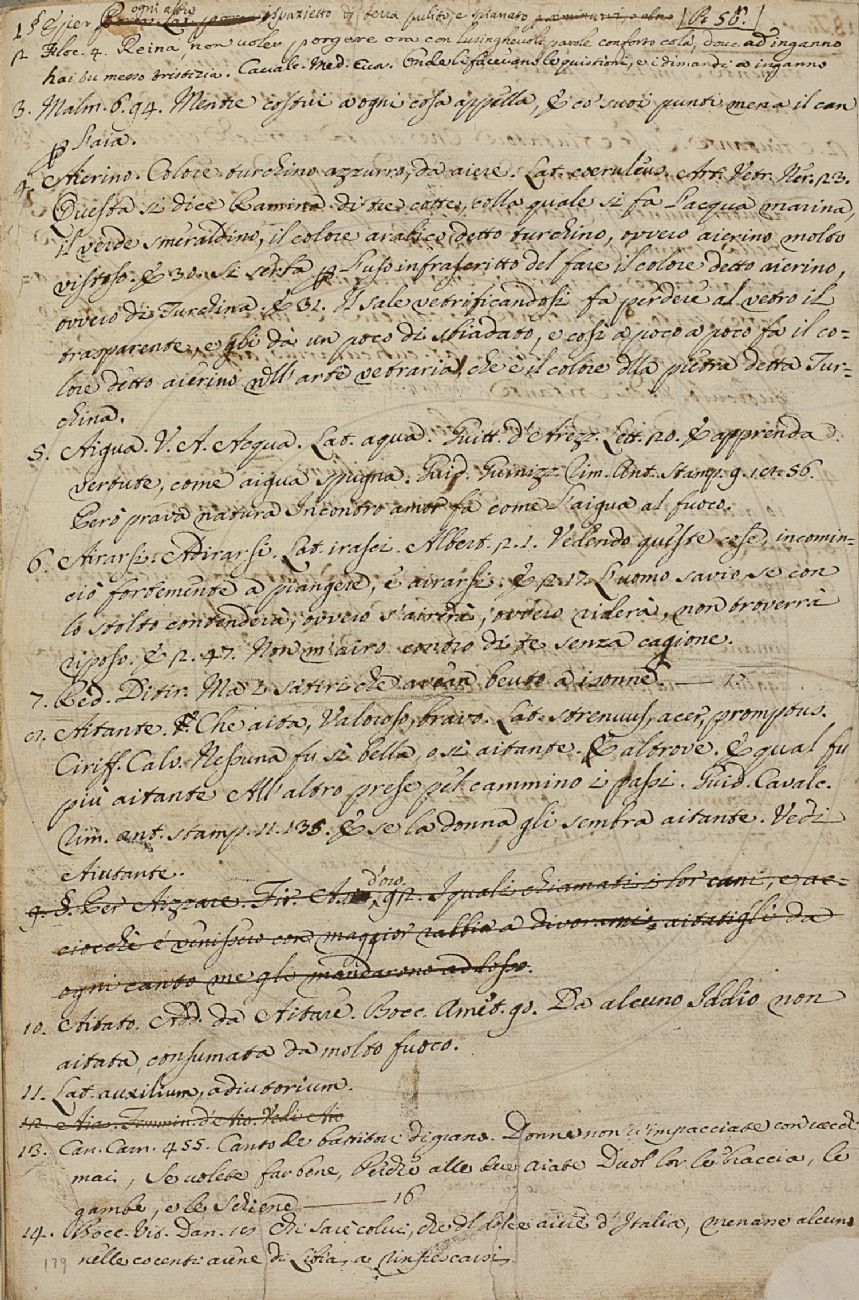 ogni altro
1. § E per spazietto di terra pulito, e spianato Pe 50.
2. Filoc. 4. Reina, non voler porgere ora con lusinghevoli parole conforto colà, dove ad inganno
hai tu messo tristizia. Cavalc. Med. Cuor. Onde li facevano le quistioni, e i dimandi a inganno
3. Malm. 6. 94. Mentre costui a ogni cosa appella, E co' suoi punti mena il can
per l'aia.
4. Aierino. Colore turchino azzurro, da aiere. Lat. coeruleus. Art. Vetr. Ner. 23.
Questa si dice Ramina di tre cotte, colla quale si fa l'acqua marina,
il verde smeraldino, il colore arabico detto turchino, ovvero aierino molto
vistoso. E 30. Si serba per l'uso infrascritto del fare il colore detto aierino,
ovvero di Turchina. E 31. Il sale vetrificandosi fa perdere al vetro il
trasparente, e gli dà un poco di sbiadato, e così a poco a poco fa il co=
lore detto aierino nell'arte vetraria, che è il colore della pietra detta Tur=
china.
5. Aigua. V. A. Acqua. Lat. aqua. Guitt. d'Arezz. Lett. 20. E apprenda
vertute, come aigua spugna. Guid. Guinizz. Rim. Ant. Stamp. 9. 56.
Però prava natura Incontro amor fa come l'aigua al fuoco.
6. Airarsi. Adirarsi. Lat. irasci. Albert. 2. 1. Vedendo queste cose, incomin=
ciò fortemente a piangere, e airarsi. E 2. 17. L'uomo savio, se con
lo stolto contenderà, ovvero s'airerà, ovvero riderà, non troverrà
riposo. E 2. 47. Non m'airo contro di te senza cagione.
7. Red. Ditir. Ma i satiri che avean beuto a isonne.
8. Aitante. Che aita, Valoroso, bravo. Lat. strenuus, acer, promptus.
Ciriff. Calv. Nessuna fu sì bella, o sì aitante. E altrove. E qual fu
più aitante All'altro prese pel cammino i passi. Guid. Cavalc.
Rim. ant. stamp. 11. 135. E se la donna gli sembra aitante. Vedi
Aiutante.
9. §. Per Aizzare. Fir. As. d'oro. 92. I quali chiamati i lor cani, e ac=
ciocchè e' venissero con maggior rabbia a divorarmi, aitatigli da
ogni canto me gli mandarono addosso.
10. Aitato. Add. da Aitare. Bocc. Amet. 90. Da alcuno Iddio non
aitata, consumata da molto fuoco.
11. Lat. auxilium, adiutorium.
12. Aia. Femmin. d'Aio. Vedi Aio
13. Can. Carn. 455. Canto de battitori di grano. Donne non v'impacciate con
mai, Se volete far bene, Perchè alle due aiate Duol lor le braccia, le
gambe, e le schiene 16
14. Bocc. Vis. Dan. Chi sare' colui, che del dolce aiere d'Italia, menane alcuno
nelle cocenti arene di Libia, a rinfrescarsi.
179